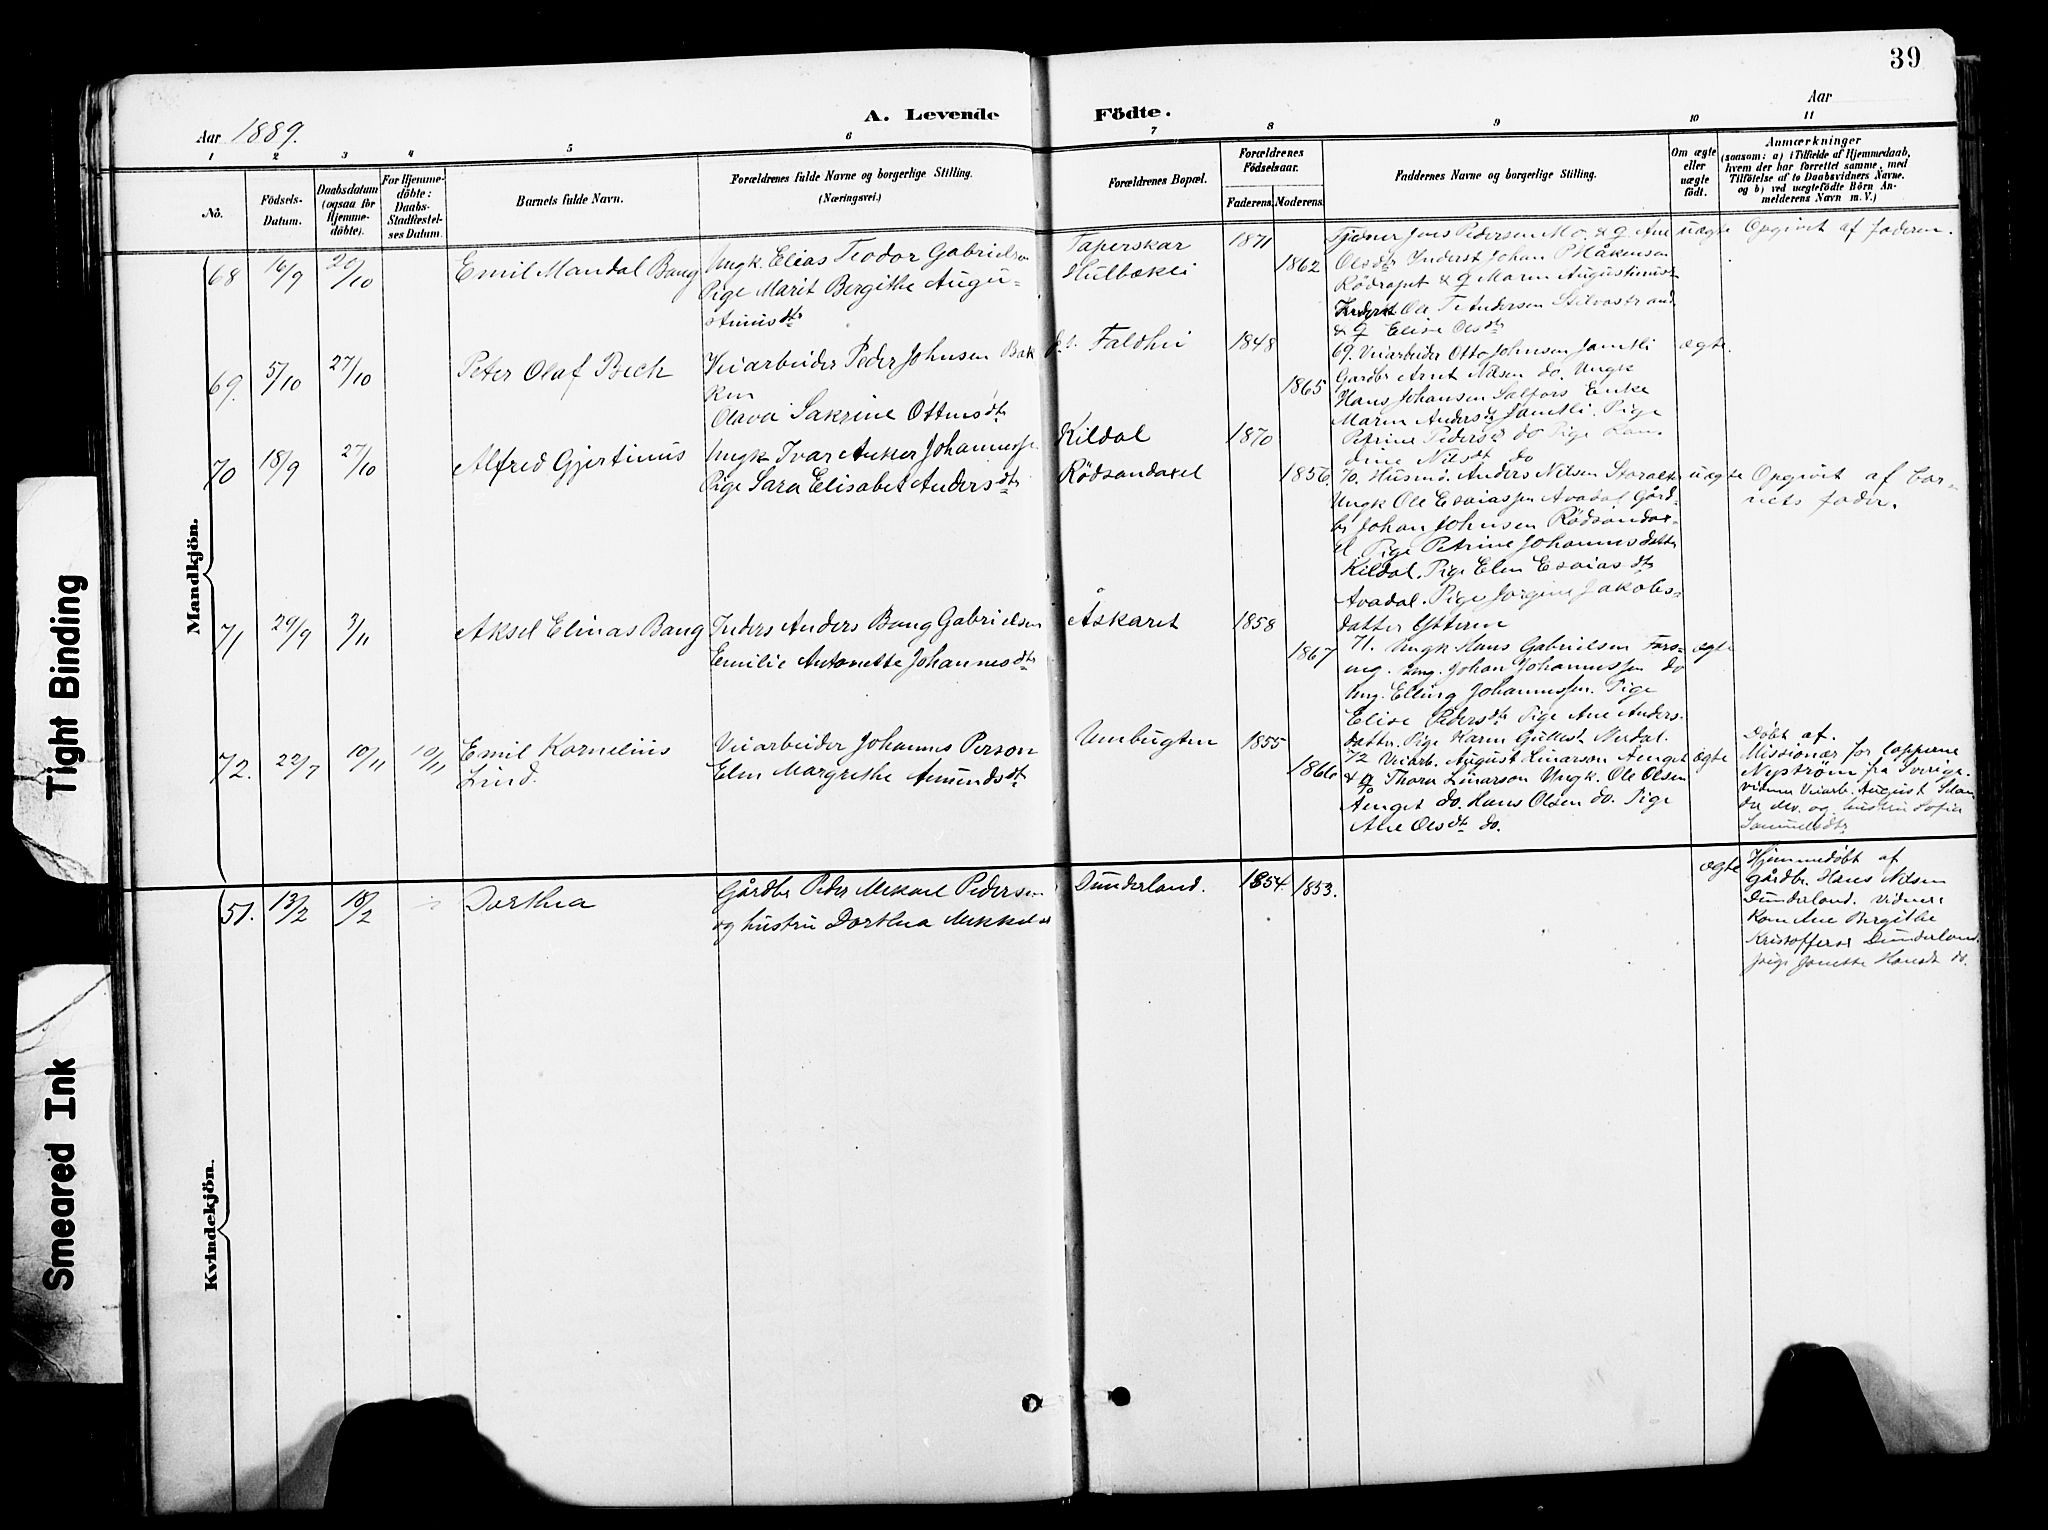 39
A. Levende Födte.
Aar 1889.
Aar
1 2 3 4 5 6 7 8 9 10 11
Nö.
Födsels-
Datum.
Daabsdatum
(ogsaa for
Hjemme-
döbte).
For Hjemme-
döbte:
Daabs-
Stadfæstel-
ses Datum.
Barnets fulde Navn.
Forældrenes fulde Navne og borgerlige Stilling.
(Næringsvei.)
Forældrenes Bopæl.
Forældrenes
Födselsaar.
Faderens. Moderens.
Faddernes Navne og borgerlige Stilling.
Om ægte
eller
uægte
födt.
Anmærkninger
(saasom: a) i Tilfælde af Hjemmedaab,
hvem der har forrettet samme, med
Tilföielse af to Daabsvidners Navne.
og b) ved uægtefödte Börn An-
melderens Navn m. V.)
Mandkjön.
68 16/9 20/10
Emil Mandal Bang
Ungk. Elias Teodor Gabrielsen
Pige Marit Bergithe Augu-
stinusdtr
Taperskar
Hulbækli
1871
1862
Tjener Jens Pedersen Mo. & q Ane
Olsdtr Inderst Johan P Håkensen
Rödrapet & q Maren Augustinusdtr
Inderst Ole T Andersen Stilvastrand
& q Elise Olsdtr
uægte
Opgivet af faderen.
69. 5/10 27/10
Peter Olaf Bech
Veiarbeider Peder Johnsen Bak
ken
Olava Sakrine Ottinsdtr
Faldhei
1848
1865
69. Veiarbeider Otto Johnsen Jamtli
Gardbr Arnt Nilsen do. Ungk
Hans Johansen Salfors Enke
Maren Andersd Jamtli. Pige
Petrine Pedersd do Pige
dine Nilsdt do
ægte.
70 18/9 27/10
Alfred Gjertinius
Ungk Ivar Anker Johannesse
Pige Sara Elisabet Andersdtr
Kildal
Rödsandaxel
1870
1856.
70. Husmd. Anders Nilsen Storalter
Ungk Ole Esaiassen Avadal Gård-
br Johan Johnsen Rödsandax-
el. Pige Petrine Johannesdatter
Kildal. Pige Elen Esaiasdtr
Avadal. Pige Jorgine Jakobs-
datter Ytteren
uægte
Opgivet af bar-
nets fader.
71 29/9 3/11
Aksel Elinas Bang
Inders Anders Bang Gabrielsen
Emilie Antonette Johannesdtr
Åskaret
1858
1867
71. Ungk Hans Gabrielsen Fors-
ung. Ung. Johan Johannessen do
Ung. Elling Johannessen. Pige
Elise Pedersdtr Pige Ane Anders-
datter. Pige Karen Gullest Nerdal.
ægte
72. 22/7 10/11 10/11
Emil Kornelius
Lind.
Veiarbeider Johannes Person
Elen Margrethe Amundsdtr
Umbugten
1855
1866
72 Veiarb. August Linarson Aenget
& q Thora Linarson Ungk. Ole Olsen
Ånget do. Hans Olsen do. Pige
Ane Olsdt do.
ægte
Døbt af.
Missionær for lapperne
Nyström fra Sverige.
vidner Veiarb. August
og hustru Sofia
Samuelsdtr
Kvindekjön.
51. 13/2 18/2
Dorthea
Gårdbr Peder Mekael Pedersen
og hustru Dorthea Mikkelsd
Dunderland.
1854.
1853.
ægte
Hjemmedøbt af
gårdbr. Hans Nilsen
Dunderland. Vidner:
Kone Ane Bergithe
Kristoffersd Dunderland
pige Janette Hansdt do.
Tight Binding
Smeared Ink